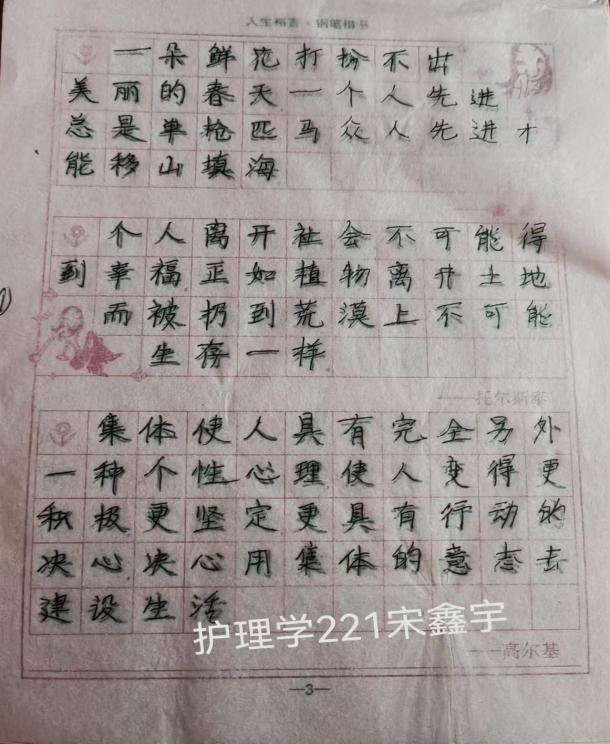 人生格言·钢笔楷书
一朵鲜花打扮不出
美丽的春天一个人先进
总是单枪匹马众人先进才
能移山填海
个人离开社会不可能得
到幸福正如植物离开土地
而被扔到荒漠上不可能
生存一样
——托尔斯泰
集体使人具有完全另外
一种个性心理使人变得更
积极更坚定更具有行动的
决心决心用集体的意志去
建设生活
护理学221宋鑫宇
——高尔基
—3—